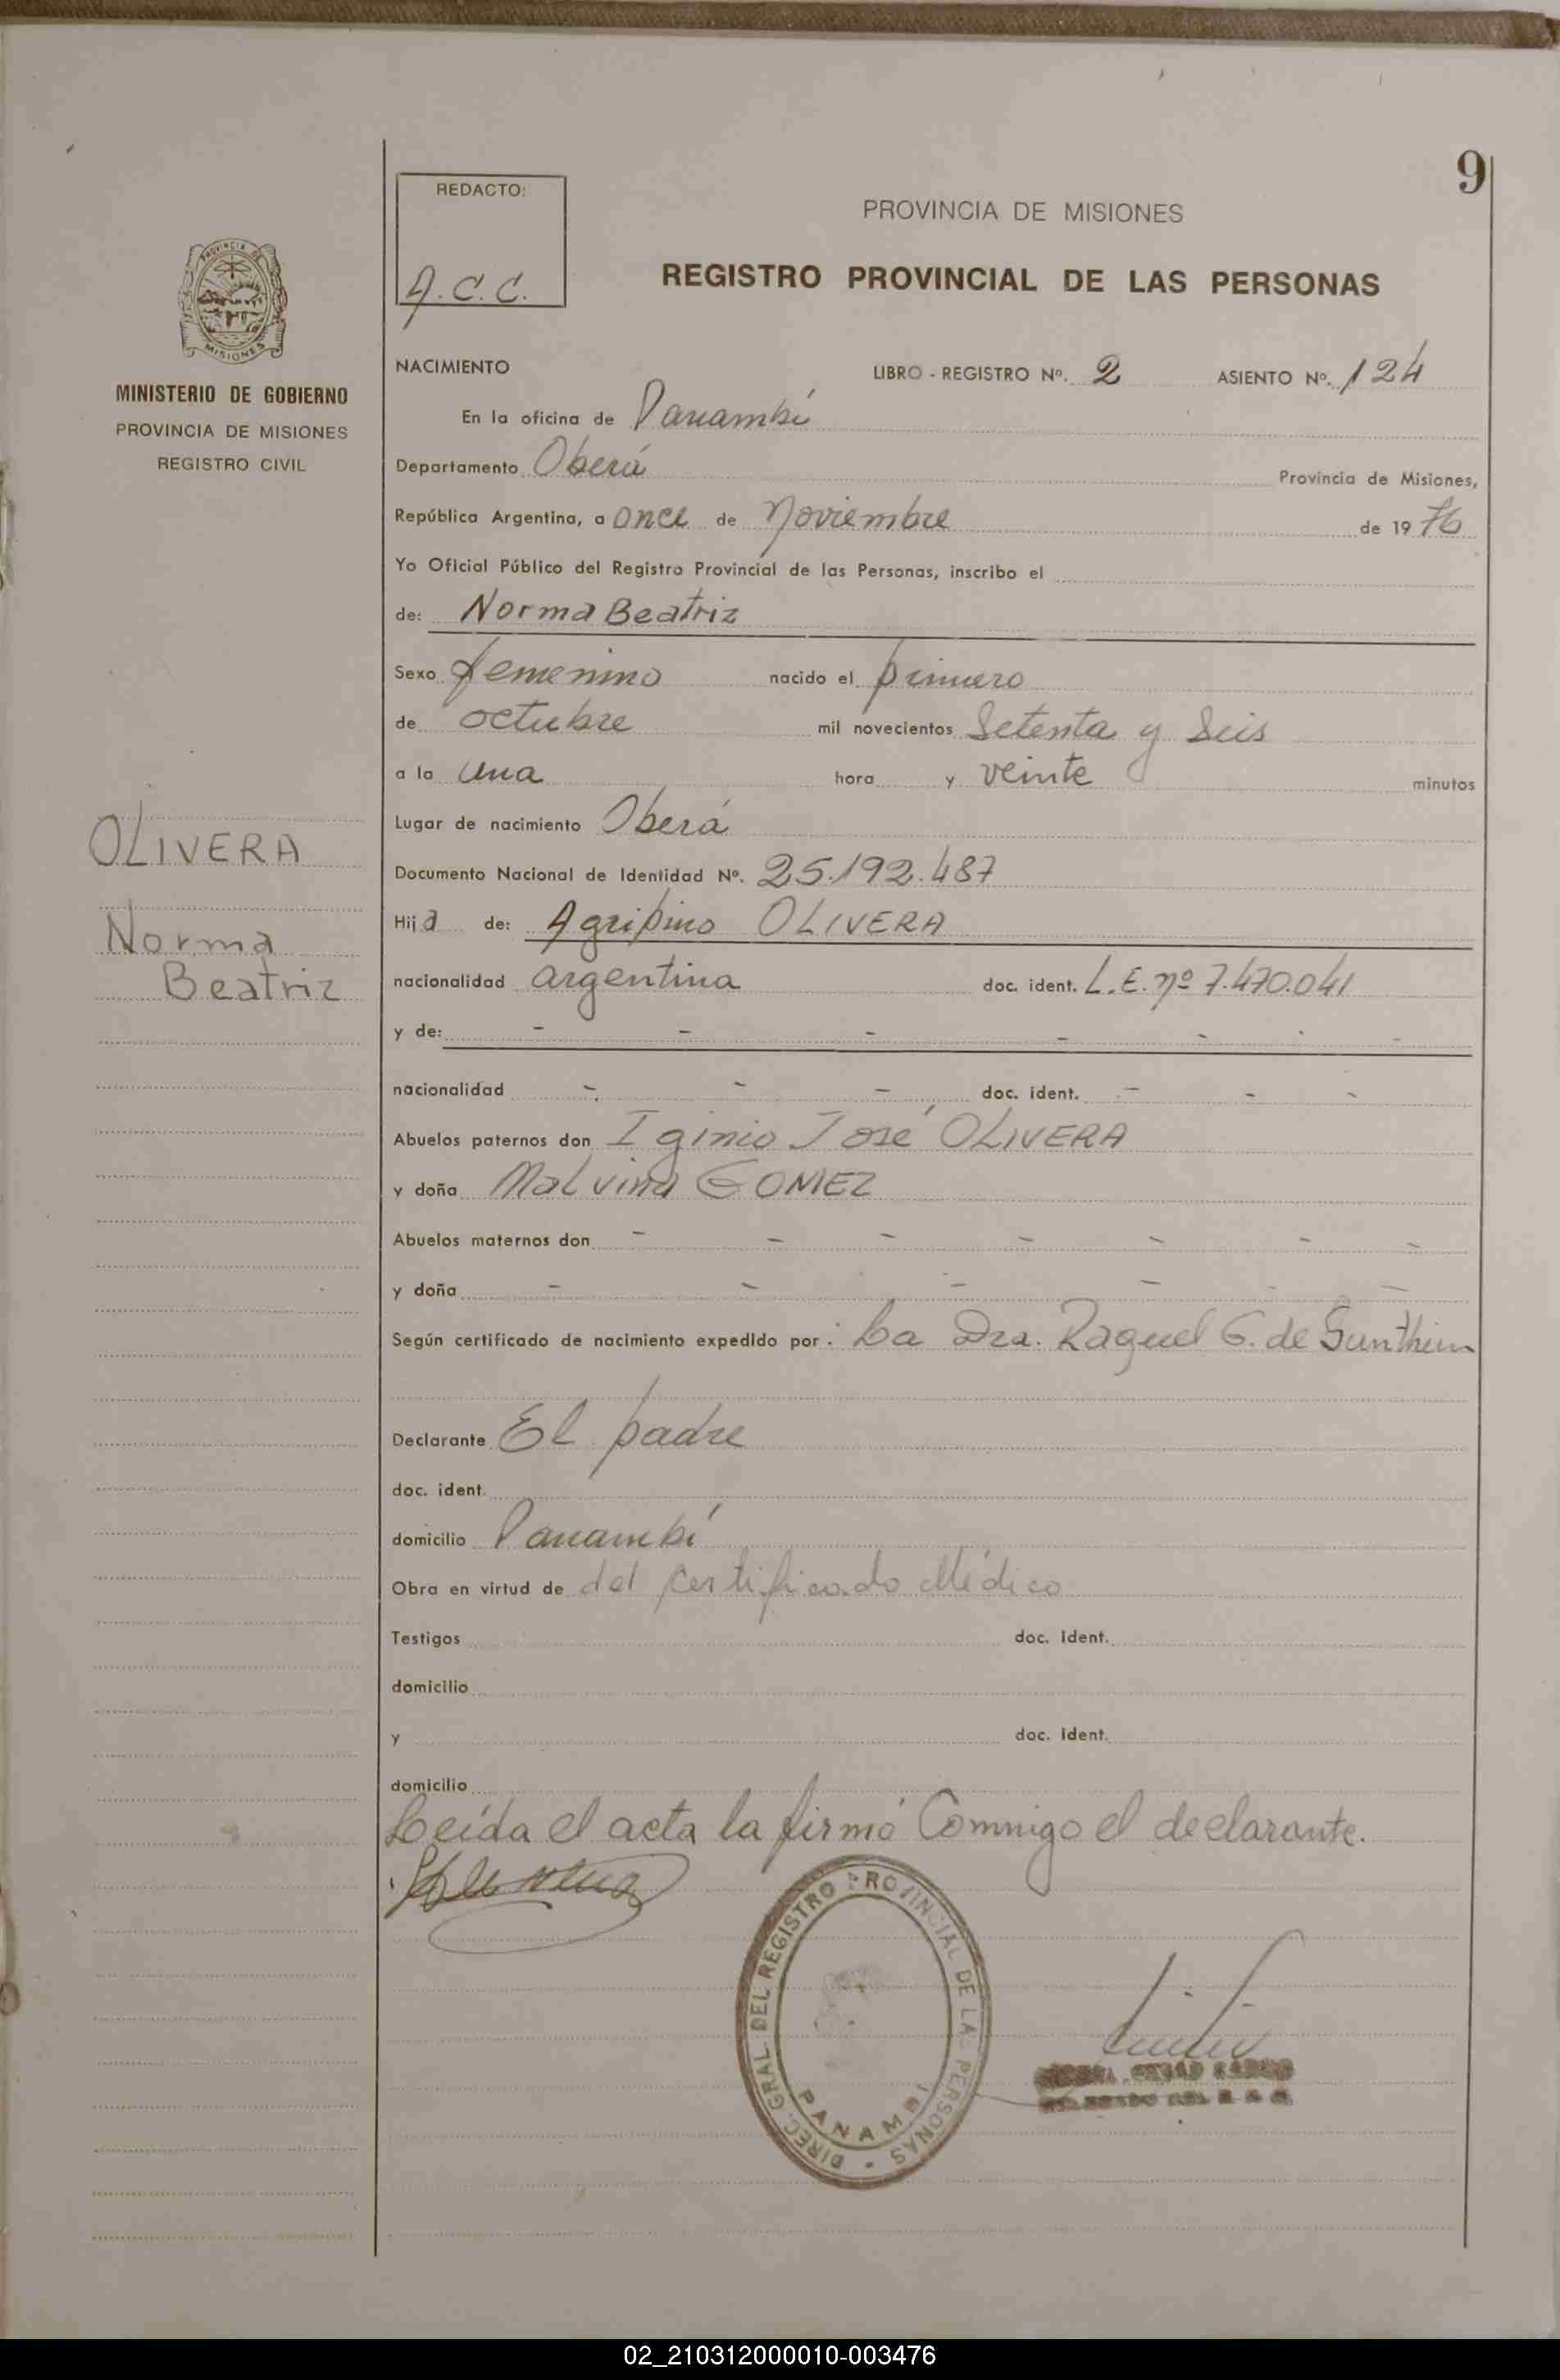 9
REDACTO:
A.C.C.
PROVINCIA DE MISIONES
REGISTRO PROVINCIAL DE LAS PERSONAS
PROVINCIA DE
MISIONES
MINISTERIO DE GOBIERNO
PROVINCIA DE MISIONES
REGISTRO CIVIL
OLIVERA
Norma
Beatriz
NACIMIENTO LIBRO - REGISTRO Nº. 2 ASIENTO Nº. 124
En la oficina de Panambí
Departamento Oberá Provincia de Misiones,
República Argentina, a once de Noviembre de 1976
Yo Oficial Público del Registro Provincial de las Personas, inscribo el
de: Norma Beatriz
Sexo femenino nacido el primero
de octubre mil novecientos Setenta y Seis
a la una hora y veinte minutos
Lugar de nacimiento Oberá
Documento Nacional de Identidad Nº. 25.192.487
Hija de: Agripino OLIVERA
nacionalidad argentina doc. ident. L.E. nº 7.470.041
y de: - - - - - - -
nacionalidad - - - doc. ident. - - -
Abuelos paternos don Iginio José OLIVERA
y doña Malvina GOMEZ
Abuelos maternos don - - - - - - -
y doña - - - - -
Según certificado de nacimiento expedido por: La Dra. Raquel G. de
Declarante El padre
doc. ident.
domicilio Panambí
Obra en virtud de del certificado Médico
Testigos doc. ident.
domicilio
y doc. ident.
domicilio
Leída el acta la firmó Conmigo el declarante.
DIREC. GRAL. DEL REGISTRO PROVINCIAL DE LAS PERSONAS
PANAMBI
02_210312000010-003476